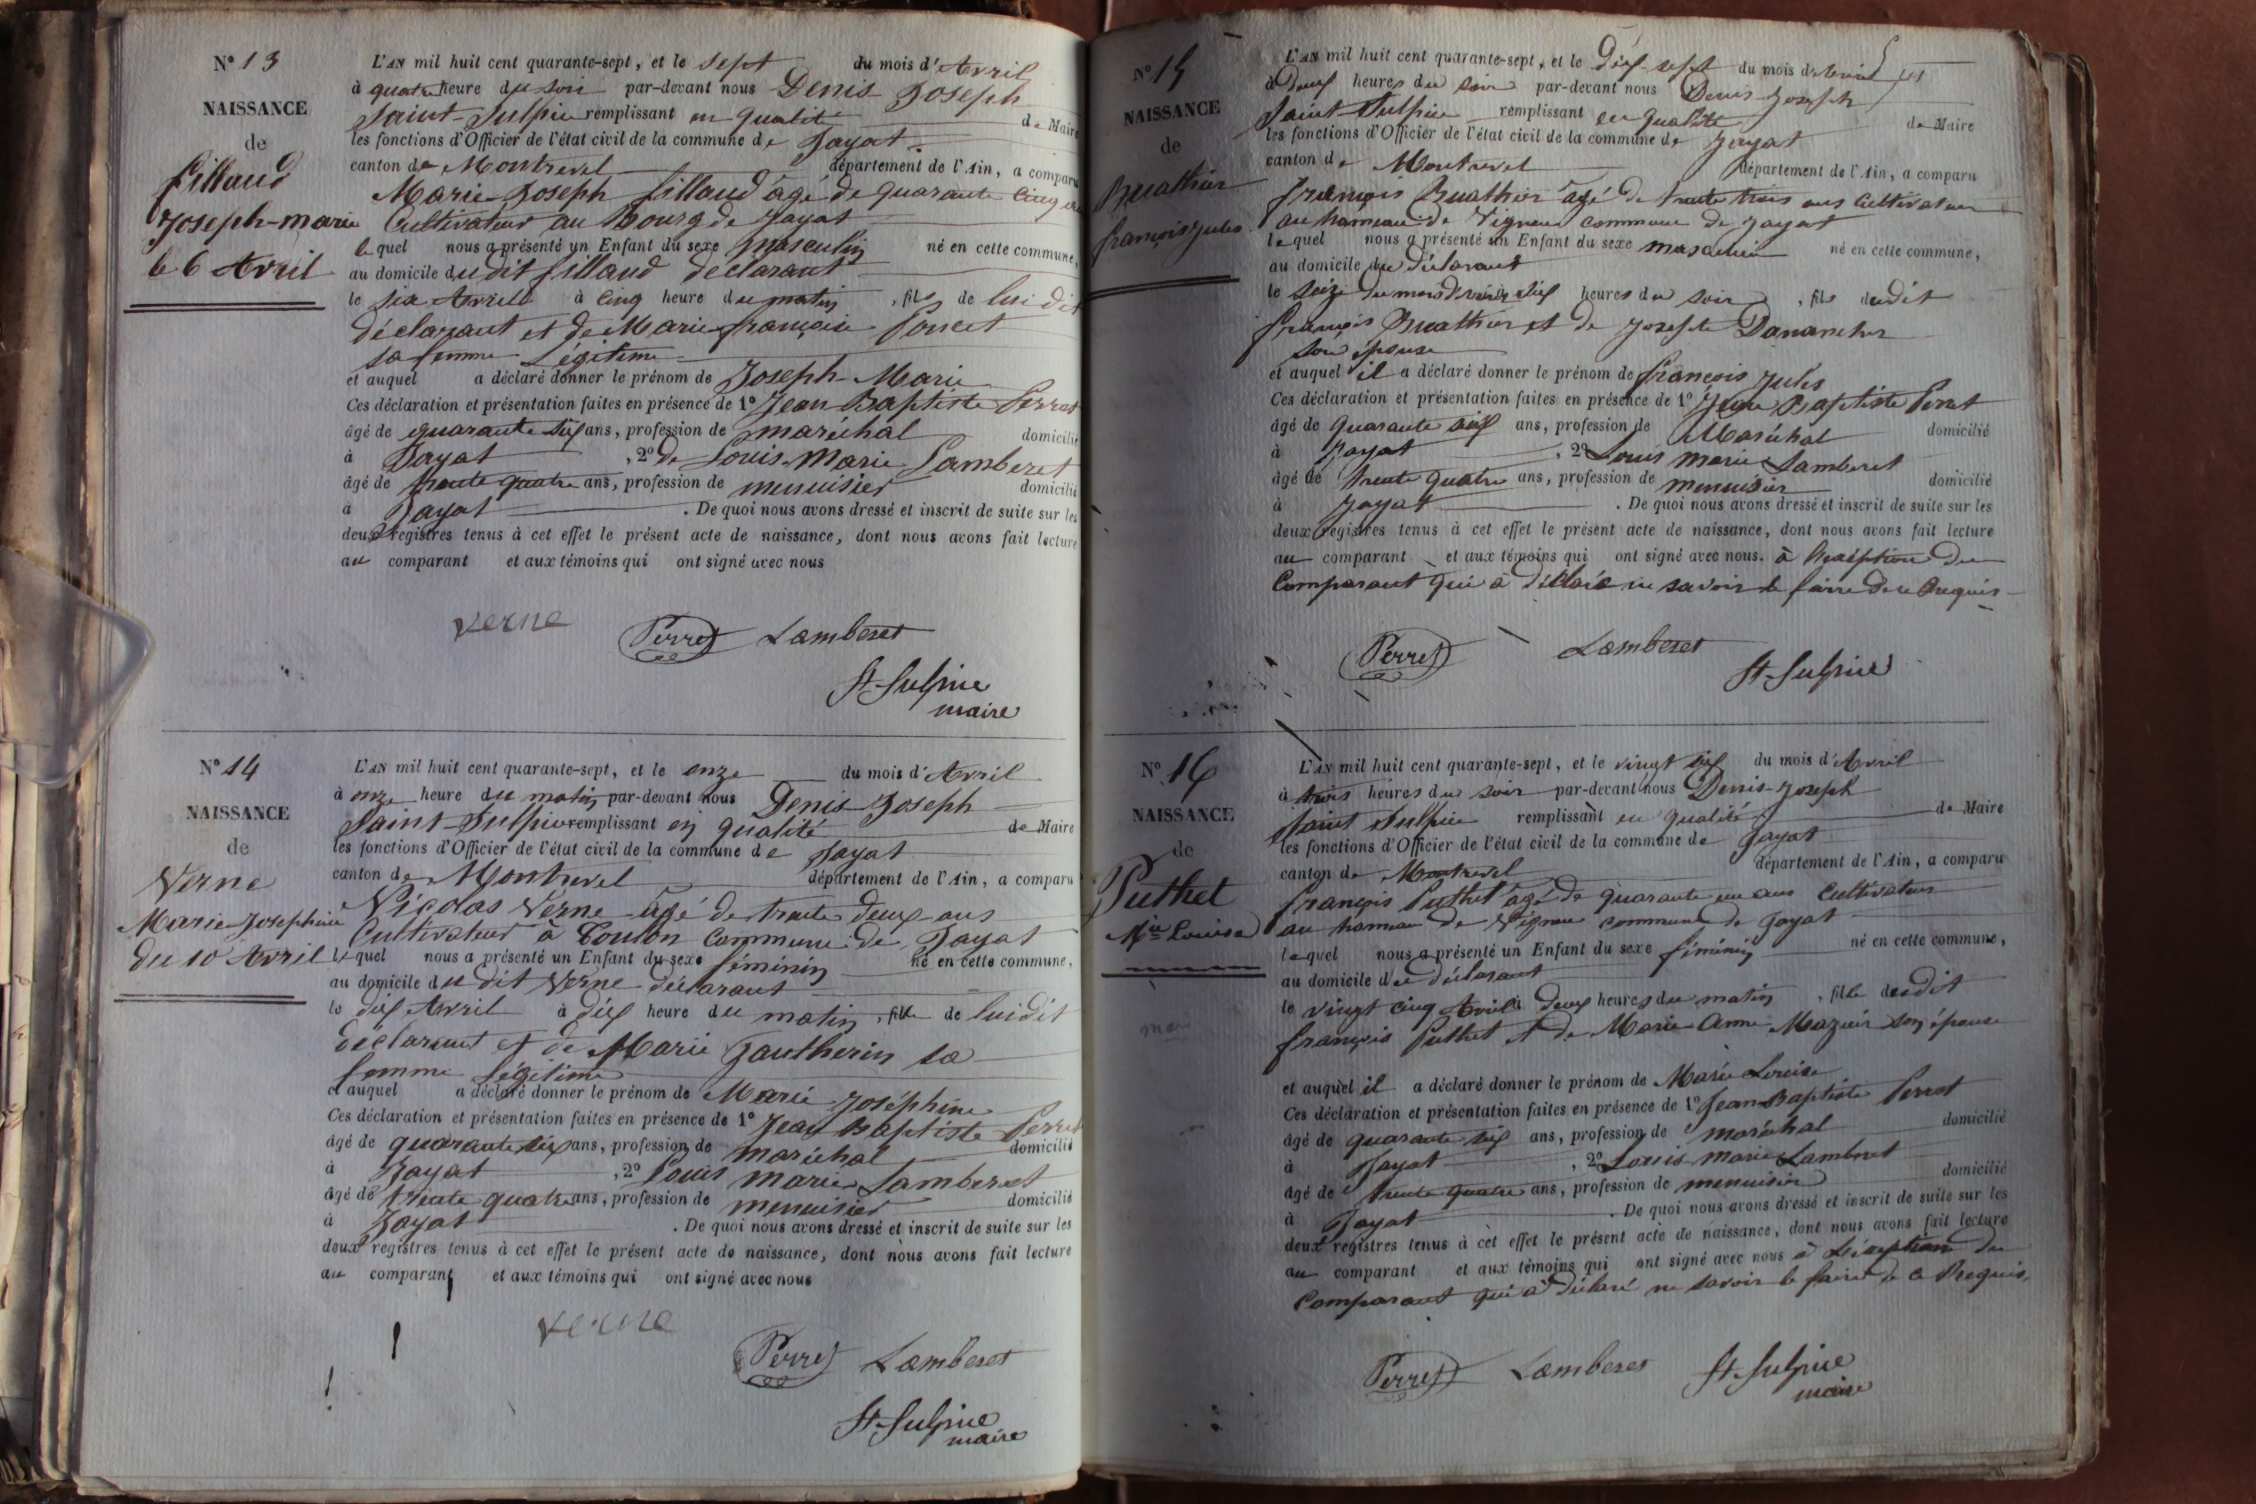 N° 13
NAISSANCE
de
Fillaud
Joseph-marie
le 6 Avril
L'AN mil huit cent quarante-sept, et le sept du mois d'Avril
à quatre heure du soir par-devant nous Denis Joseph
Saint-Sulpice remplissant en qualité de Maire
les fonctions d'Officier de l'état civil de la commune de Jayat.
canton de Montrevel département de l'Ain, a comparu
Marie Joseph fillaud âgé de quarante cinq ans
Cultivateur au Bourg de Jayat
lequel nous a présenté un Enfant du sexe masculin né en cette commune,
au domicile du dit fillaud déclarant
le six Avril à cinq heure du matin, fils de lui dit
déclarant et de Marie françoise Poncet
sa femme Légitime
et auquel a déclaré donner le prénom de Joseph-Marie
Ces déclaration et présentation faites en présence de 1° Jean Baptiste Perret
âgé de quarante six ans, profession de maréchal domicilié
à Jayat, 2° de Louis Marie Lamberet
âgé de trente quatre ans, profession de menuisier domicilié
à Jayat. De quoi nous avons dressé et inscrit de suite sur les
deux registres tenus à cet effet le présent acte de naissance, dont nous avons fait lecture
au comparant et aux témoins qui ont signé avec nous
Verne Perret Lamberet
St-Sulpice
maire
N° 14
NAISSANCE
de
Verne
Marie-Joséphine
du 10 Avril
L'AN mil huit cent quarante-sept, et le onze du mois d'Avril
à onze heure du matin par-devant nous Denis Joseph
Saint-Sulpice remplissant en qualité de Maire
les fonctions d'Officier de l'état civil de la commune de Jayat
canton de Montrevel département de l'Ain, a comparu
Nicolas Verne âgé de trente deux ans
Cultivateur à Coulon commune de Jayat
lequel nous a présenté un Enfant du sexe féminin né en cette commune,
au domicile du dit Verne déclarant
le dix Avril à dix heure du matin, fille de lui dit
déclarant et de Marie Gautherin sa
femme Légitime
et auquel a déclaré donner le prénom de Marie Joséphine
Ces déclaration et présentation faites en présence de 1° Jean Baptiste Perret
âgé de quarante six ans, profession de maréchal domicilié
à Jayat, 2° Louis Marie Lamberet
âgé de trente quatre ans, profession de menuisier domicilié
à Jayat. De quoi nous avons dressé et inscrit de suite sur les
deux registres tenus à cet effet le présent acte de naissance, dont nous avons fait lecture
au comparant et aux témoins qui ont signé avec nous
Verne
Perret Lamberet
St-Sulpice
maire
N° 15
NAISSANCE
de
Buathier
françois jules
L'AN mil huit cent quarante-sept, et le Dix-sept du mois d'Avril
à Deux heures du soir par-devant nous Denis-Joseph
Saint Sulpice remplissant en qualité de Maire
les fonctions d'Officier de l'état civil de la commune de Jayat
canton de Montrevel département de l'Ain, a comparu
françois Buathier âgé de trente trois ans Cultivateur
au hameau de Vigneux commune de Jayat
lequel nous a présenté un Enfant du sexe masculin né en cette commune,
au domicile du déclarant
le seize du mois d'avril à six heures du soir, fils dudit
françois Buathier et de Josephte Danancher
son épouse
et auquel il a déclaré donner le prénom de françois Jules
Ces déclaration et présentation faites en présence de 1° Jean Baptiste Perret
âgé de quarante six ans, profession de Maréchal domicilié
à Jayat, 2° Louis Marie Lamberet
âgé de trente quatre ans, profession de menuisier domicilié
à Jayat. De quoi nous avons dressé et inscrit de suite sur les
deux registres tenus à cet effet le présent acte de naissance, dont nous avons fait lecture
au comparant et aux témoins qui ont signé avec nous. à l'exéption du
Comparant qui à déclaré ne savoir le faire de ce Requis
Perret Lamberet St-Sulpice
N° 16
NAISSANCE
de
Puthet
Mie Louise
L'AN mil huit cent quarante-sept, et le vingt six du mois d'Avril
à trois heures du soir par-devant nous Denis-Joseph
Saint Sulpice remplissant en qualité de Maire
les fonctions d'Officier de l'état civil de la commune de Jayat
canton de Montrevel département de l'Ain, a comparu
françois Puthet âgé de quarante un ans Cultivateur
au hameau de Vigneux commune de Jayat
lequel nous a présenté un Enfant du sexe féminin né en cette commune,
au domicile du déclarant
le vingt cinq Avril à deux heures du matin, fille dudit
françois Puthet et de Marie Anne Mazuir son épouse
et auquel il a déclaré donner le prénom de Marie Louise
Ces déclaration et présentation faites en présence de 1° Jean Baptiste Perret
âgé de quarante six ans, profession de maréchal domicilié
à Jayat, 2° Louis Marie Lamberet
âgé de trente quatre ans, profession de menuisier domicilié
à Jayat. De quoi nous avons dressé et inscrit de suite sur les
deux registres tenus à cet effet le présent acte de naissance, dont nous avons fait lecture
au comparant et aux témoins qui ont signé avec nous à l'éxéption du
Comparant qui à déclaré ne savoir le faire de ce Requis.
Perret Lamberet St-Sulpice
maire